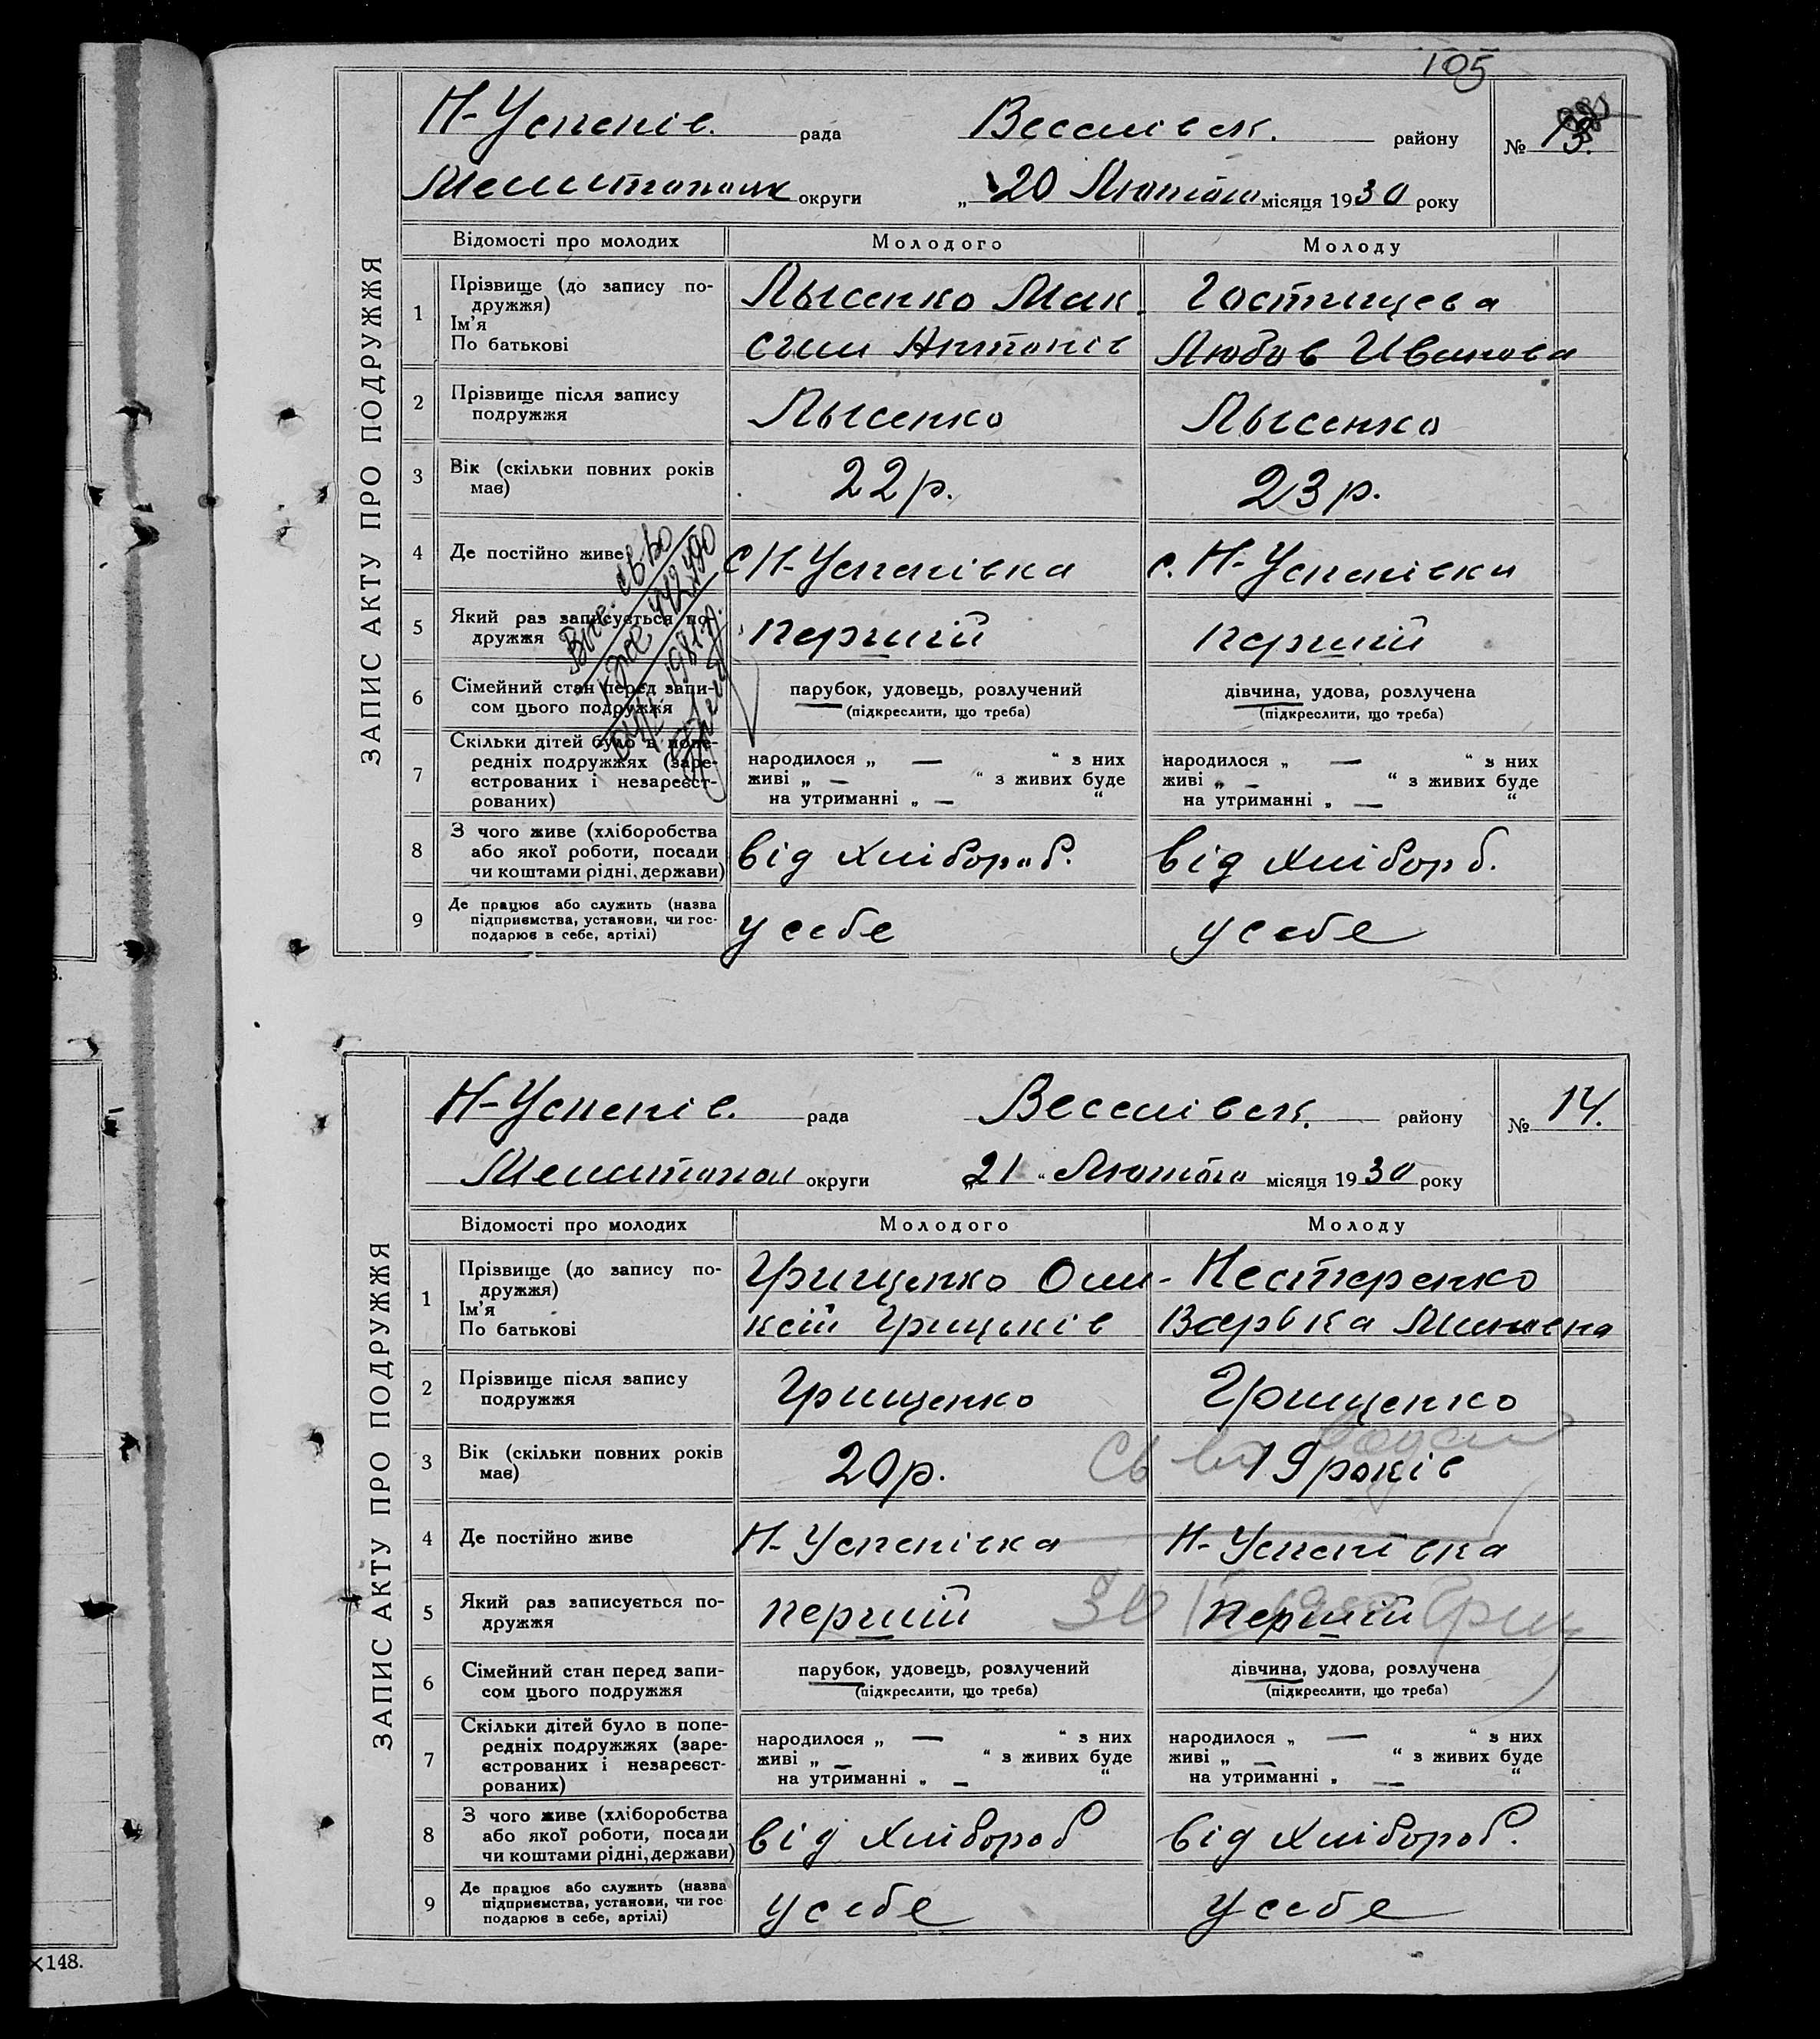 105
ЗАПИС АКТУ ПРО ПОДРУЖЖЯ
Н-Успенів. рада Веселівск. району № 13.
Мелітопольк округи „ 20 Лютого місяця 1930 року
Відомості про молодих Молодого Молоду
1 Прізвище (до запису по-
дружжя)
Ім'я
По батькові
Лысенко Мак.
сим Антонів
Гостищева
Любов Иванова
2 Прізвище після запису
подружжя
Лысенко Лысенко
3 Вік (скільки повних років
має)
22 р. 23 р.
4 Де постійно живе с Н-Успенівка с. Н-Успенівки
5 Який раз записується по-
дружжя
першій першій
6 Сімейний стан перед запи-
сом цього подружжя
парубок, удовець, розлучений
(підкреслити, що треба)
дівчина, удова, розлучена
(підкреслити, що треба)
7 Скільки дітей було в попе-
редніх подружжях (заре-
єстрованих і незареєст-
рованих)
народилося „ — “ з них
живі „ — “ з живих буде
на утриманні „ — “
народилося „ — “ з них
живі „ — “ з живих буде
на утриманні „ — “
8 З чого живе (хліборобства
або якої роботи, посади
чи коштами рідні, держави)
від хлібороб. від хліборб.
9 Де працює або служить (назва
підприємства, установи, чи гос-
подарює в себе, артілі)
у себе у себе
св-во
442990
1981 р.
ЗАПИС АКТУ ПРО ПОДРУЖЖЯ
Н-Успенів. рада Веселівск. району № 14.
Мелітопол округи „21 “ Лютого місяця 1930 року
Відомості про молодих Молодого Молоду
1 Прізвище (до запису по-
дружжя)
Ім'я
По батькові
Грищенко Оли-
ксій Грицьків
Нестеренко
Варвка
2 Прізвище після запису
подружжя
Грищенко Грищенко
3 Вік (скільки повних років
має)
20 р. 19 років
4 Де постійно живе Н-Успенівка Н-Успенівка
5 Який раз записується по-
дружжя
першій першій
6 Сімейний стан перед запи-
сом цього подружжя
парубок, удовець, розлучений
(підкреслити, що треба)
дівчина, удова, розлучена
(підкреслити, що треба)
7 Скільки дітей було в попе-
редніх подружжях (заре-
єстрованих і незареєст-
рованих)
народилося „ — “ з них
живі „ — “ з живих буде
на утриманні „ — “
народилося „ — “ з них
живі „ — “ з живих буде
на утриманні „ — “
8 З чого живе (хліборобства
або якої роботи, посади
чи коштами рідні, держави)
від хлібороб від хлібороб.
9 Де працює або служить (назва
підприємства, установи, чи гос
подарює в себе, артілі)
у себе у себе
×148.